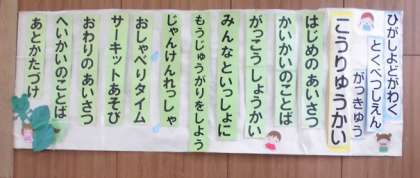 ひがしよどがわく
とくべつしえん
がっきゅう
こうりゅうかい
はじめのあいさつ
かいかいのことば
がっこうしょうかい
みんなといっしょに
もうじゅうがりをしよう
じゃんけんれっしゃ
おしゃべりタイム
サーキットあそび
おわりのあいさつ
へいかいのことば
あとかたづけ